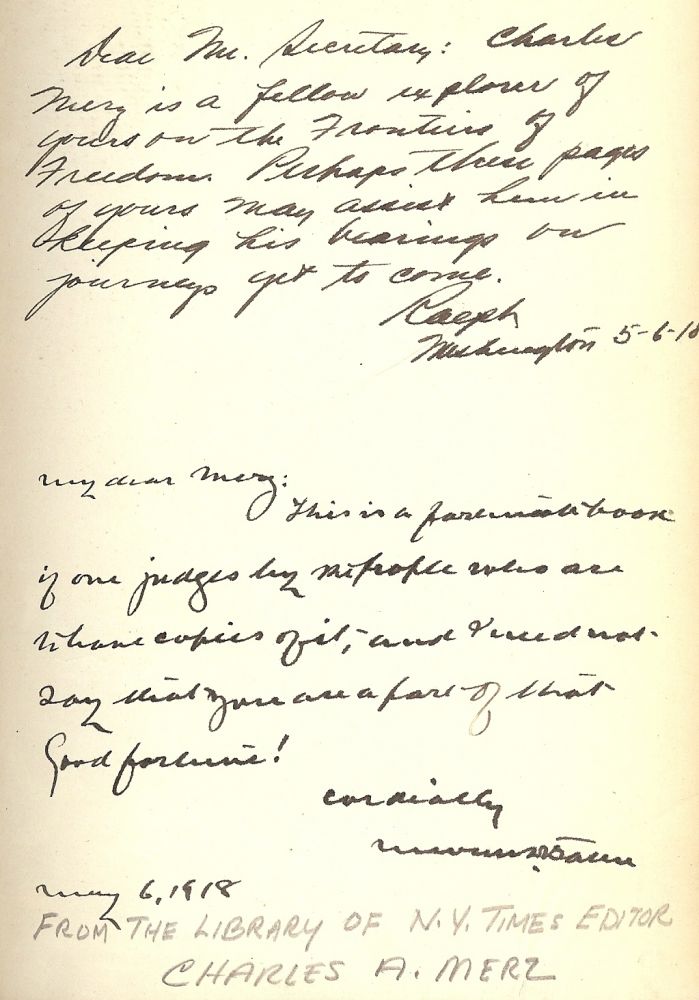 Dear Mr. Secretary: Charles
Merz is a fellow explorer of
yours on the Frontiers of
Freedom. Perhaps these pages
of yours may assist him in
keeping his bearings on
journeys yet to come.
Ralph
Washington 5-6-18
My dear Merz:
This is a fortunate book
if one judges by the people who are
to have copies of it, and I need not
say that you are a part of that
Good fortune!
Cordially
May 6, 1918
FROM THE LIBRARY OF N.Y. TIMES EDITOR
CHARLES A. MERZ